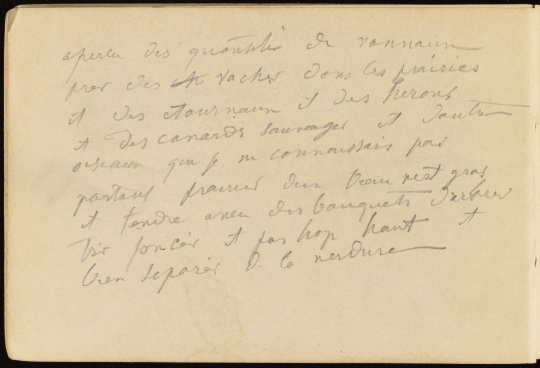 aperçu des quantités de vanneaux
pres des vaches dans les prairies
et des étournaux et des herons
et des canards sauvages et d'autres
oiseaux que je ne connaissais pas
partout prairies d'un beau vert gras
et tendre avec des bouquets d'arbres
très foncés et pas trop haut et
bien séparés de la verdure